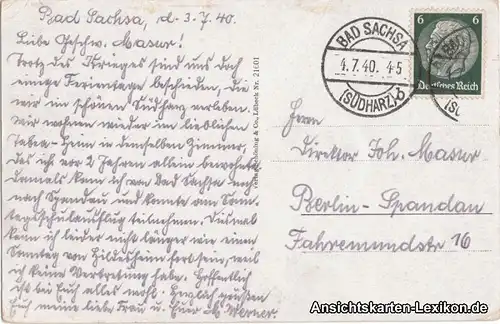 Bad Sachsa, d. 3.7.40.
Liebe Geschw. Masur!
Trotz des Krieges sind uns doch
einige Ferientage beschieden, die
wir im schönen Südharz verleben.
Wir wohnen wieder im lieblichen
Tabea-Heim in demselben Zimmer,
das ich vor 2 Jahren allein bewohnte.
Damals kam ich von Bad Sachsa noch
nach Spandau und konnte am Sonn-
tagsschulausflug teilnehmen. Diesmal
kann ich leider nicht länger wie einen
Sonntag von Hildesheim fern sein, weil
ich keine Vertretung habe. Hoffentlich
ist bei Euch alles wohl. Herzlich grüßen
Euch meine liebe Frau u. Euer Werner.
& Co., Lübeck Nr. 21601
BAD SACHSA
4.7.40. 4-5
(SÜDHARZ) b
6 6
Deutsches Reich
Herrn
Direktor Joh. Masur
Berlin-Spandau
Fahremundstr 16
Ansichtskarten-Lexikon.de